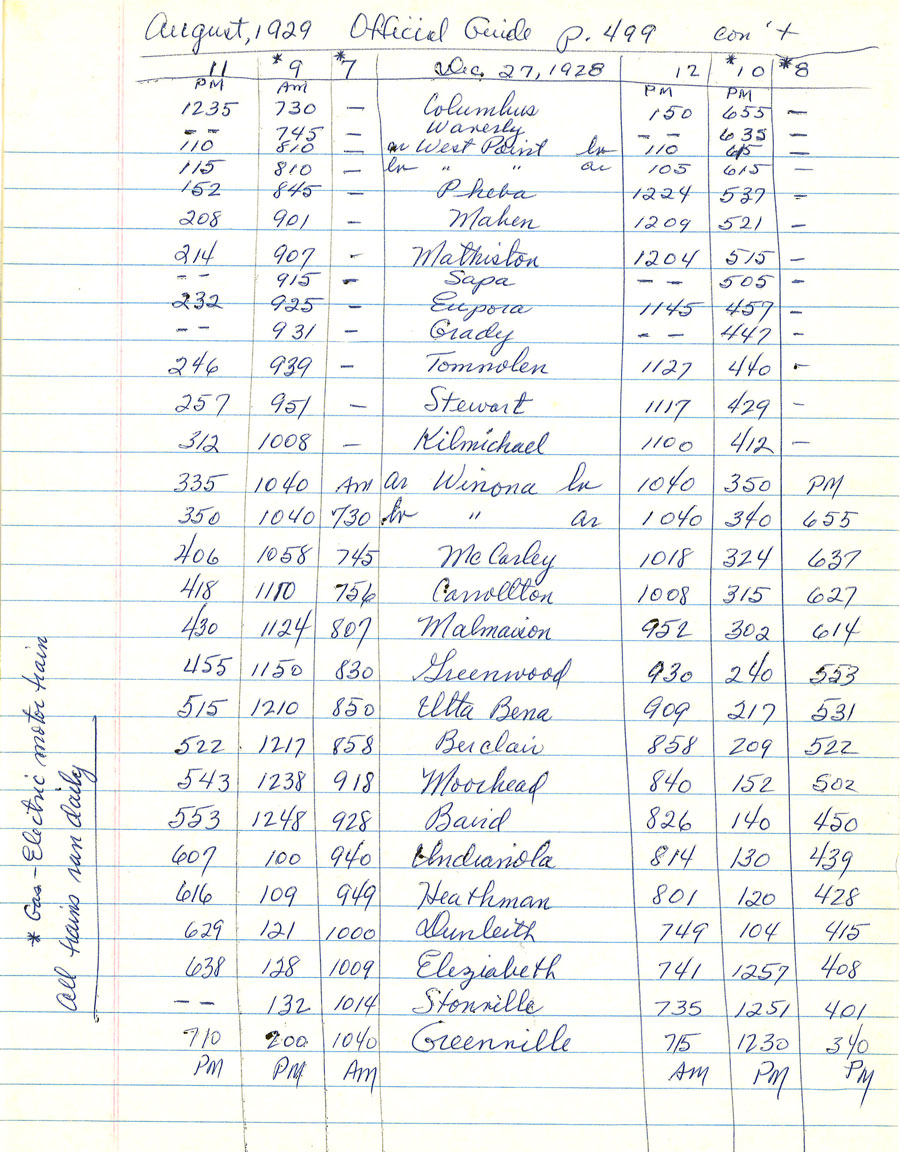 August, 1929 Official Guide p. 499 con't
11 *9 *7 Dec. 27, 1928 12 *10 *8
PM AM PM PM
1235 730 — Columbus 150 655 —
-- 745 — Waverly -- 635 —
110 810 — ar West Point lv 110 615 —
115 810 — lv " " ar 105 615 —
152 845 — Pheba 1224 537 -
208 901 - Mahen 1209 521 -
214 907 - Mathiston 1204 515 -
-- 915 - Sapa -- 505 -
232 925 - Eupora 1145 457 -
-- 931 - Grady -- 447 -
246 939 — Tomnolen 1127 440 -
257 951 — Stewart 1117 429 -
312 1008 — Kilmichael 1100 412 —
335 1040 AM ar Winona lv 1040 350 PM
350 1040 730 lv " ar 1040 340 655
406 1058 745 McCarley 1018 324 637
418 1110 756 Carrollton 1008 315 627
430 1124 807 Malmaison 952 302 614
455 1150 830 Greenwood 930 240 553
515 1210 850 Itta Bena 909 217 531
522 1217 858 Berclair 858 209 522
543 1238 918 Moorhead 840 152 502
553 1248 928 Baird 826 140 450
607 100 940 Indianola 814 130 439
616 109 949 Heathman 801 120 428
629 121 1000 Dunleith 749 104 415
638 128 1009 Eleziabeth 741 1257 408
-- 132 1014 Stonville 735 1251 401
710 200 1040 Greenville 715 1230 340
PM PM AM AM PM PM
* Gas-Electric motor train
All trains run daily